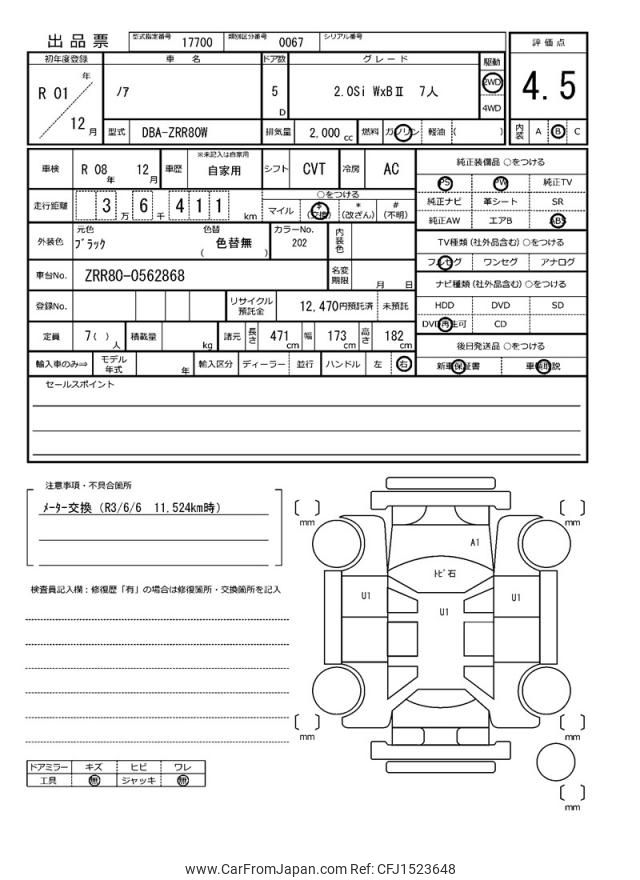 出品票 型式指定番号 17700 類別区分番号 0067 シリアル番号
評価点
4.5
内装 A B C
初年度登録 車名 ドア数 グレード 駆動
R 01 年 12 月 ノア 5 D 2.0Si WxBⅡ 7人 2WD
4WD
型式 DBA-ZRR80W 排気量 2,000 cc 燃料 ガソリン 軽油 ( )
車検 R 08 年 12 月 車歴 ※未記入は自家用 自家用 シフト CVT 冷房 AC
走行距離 3 万 6 千 4 1 1 km
○をつける
マイル $ (交換) * (改ざん) # (不明)
外装色 元色 ブラック 色替 ( 色替無 ) カラーNo. 202 内装色
車台No. ZRR80-0562868 名変期限 月 日
登録No. リサイクル預託金 12,470円預託済 未預託
定員 7( ) 人 積載量 kg 諸元 長さ 471 cm 幅 173 cm 高さ 182 cm
輸入車のみ⇒ モデル年式 年 輸入区分 ディーラー 並行 ハンドル 左 右
純正装備品 ○をつける
PS PW 純正TV
純正ナビ 革シート SR
純正AW エアB ABS
TV種類 (社外品含む) ○をつける
フルセグ ワンセグ アナログ
ナビ種類 (社外品含む) ○をつける
HDD DVD SD
DVD再生可 CD
後日発送品 ○をつける
新車保証書 車輌取説
セールスポイント
注意事項・不具合箇所
メーター交換 (R3/6/6 11,524km時)
検査員記入欄:修復歴「有」の場合は修復箇所・交換箇所を記入
ドアミラー キズ ヒビ ワレ
工具 無 ジャッキ 無
mm
mm
A1
トビ石
U1
U1
U1
mm
mm
mm
www.CarFromJapan.com Ref: CFJ1523648